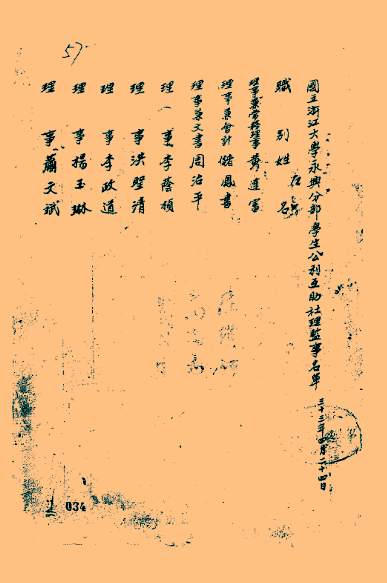 57
國立浙江大學永興分部學生公利互助社理監事名單 三十三年四月二十四日
職別 姓名
理事兼常務理事 黄達
理事兼會計 鳳書
理事兼文書 周治平
理事 李蔭楨
理事 洪聖清
理事 李政道
理事 楊玉琳
理事 蕭文斌
034